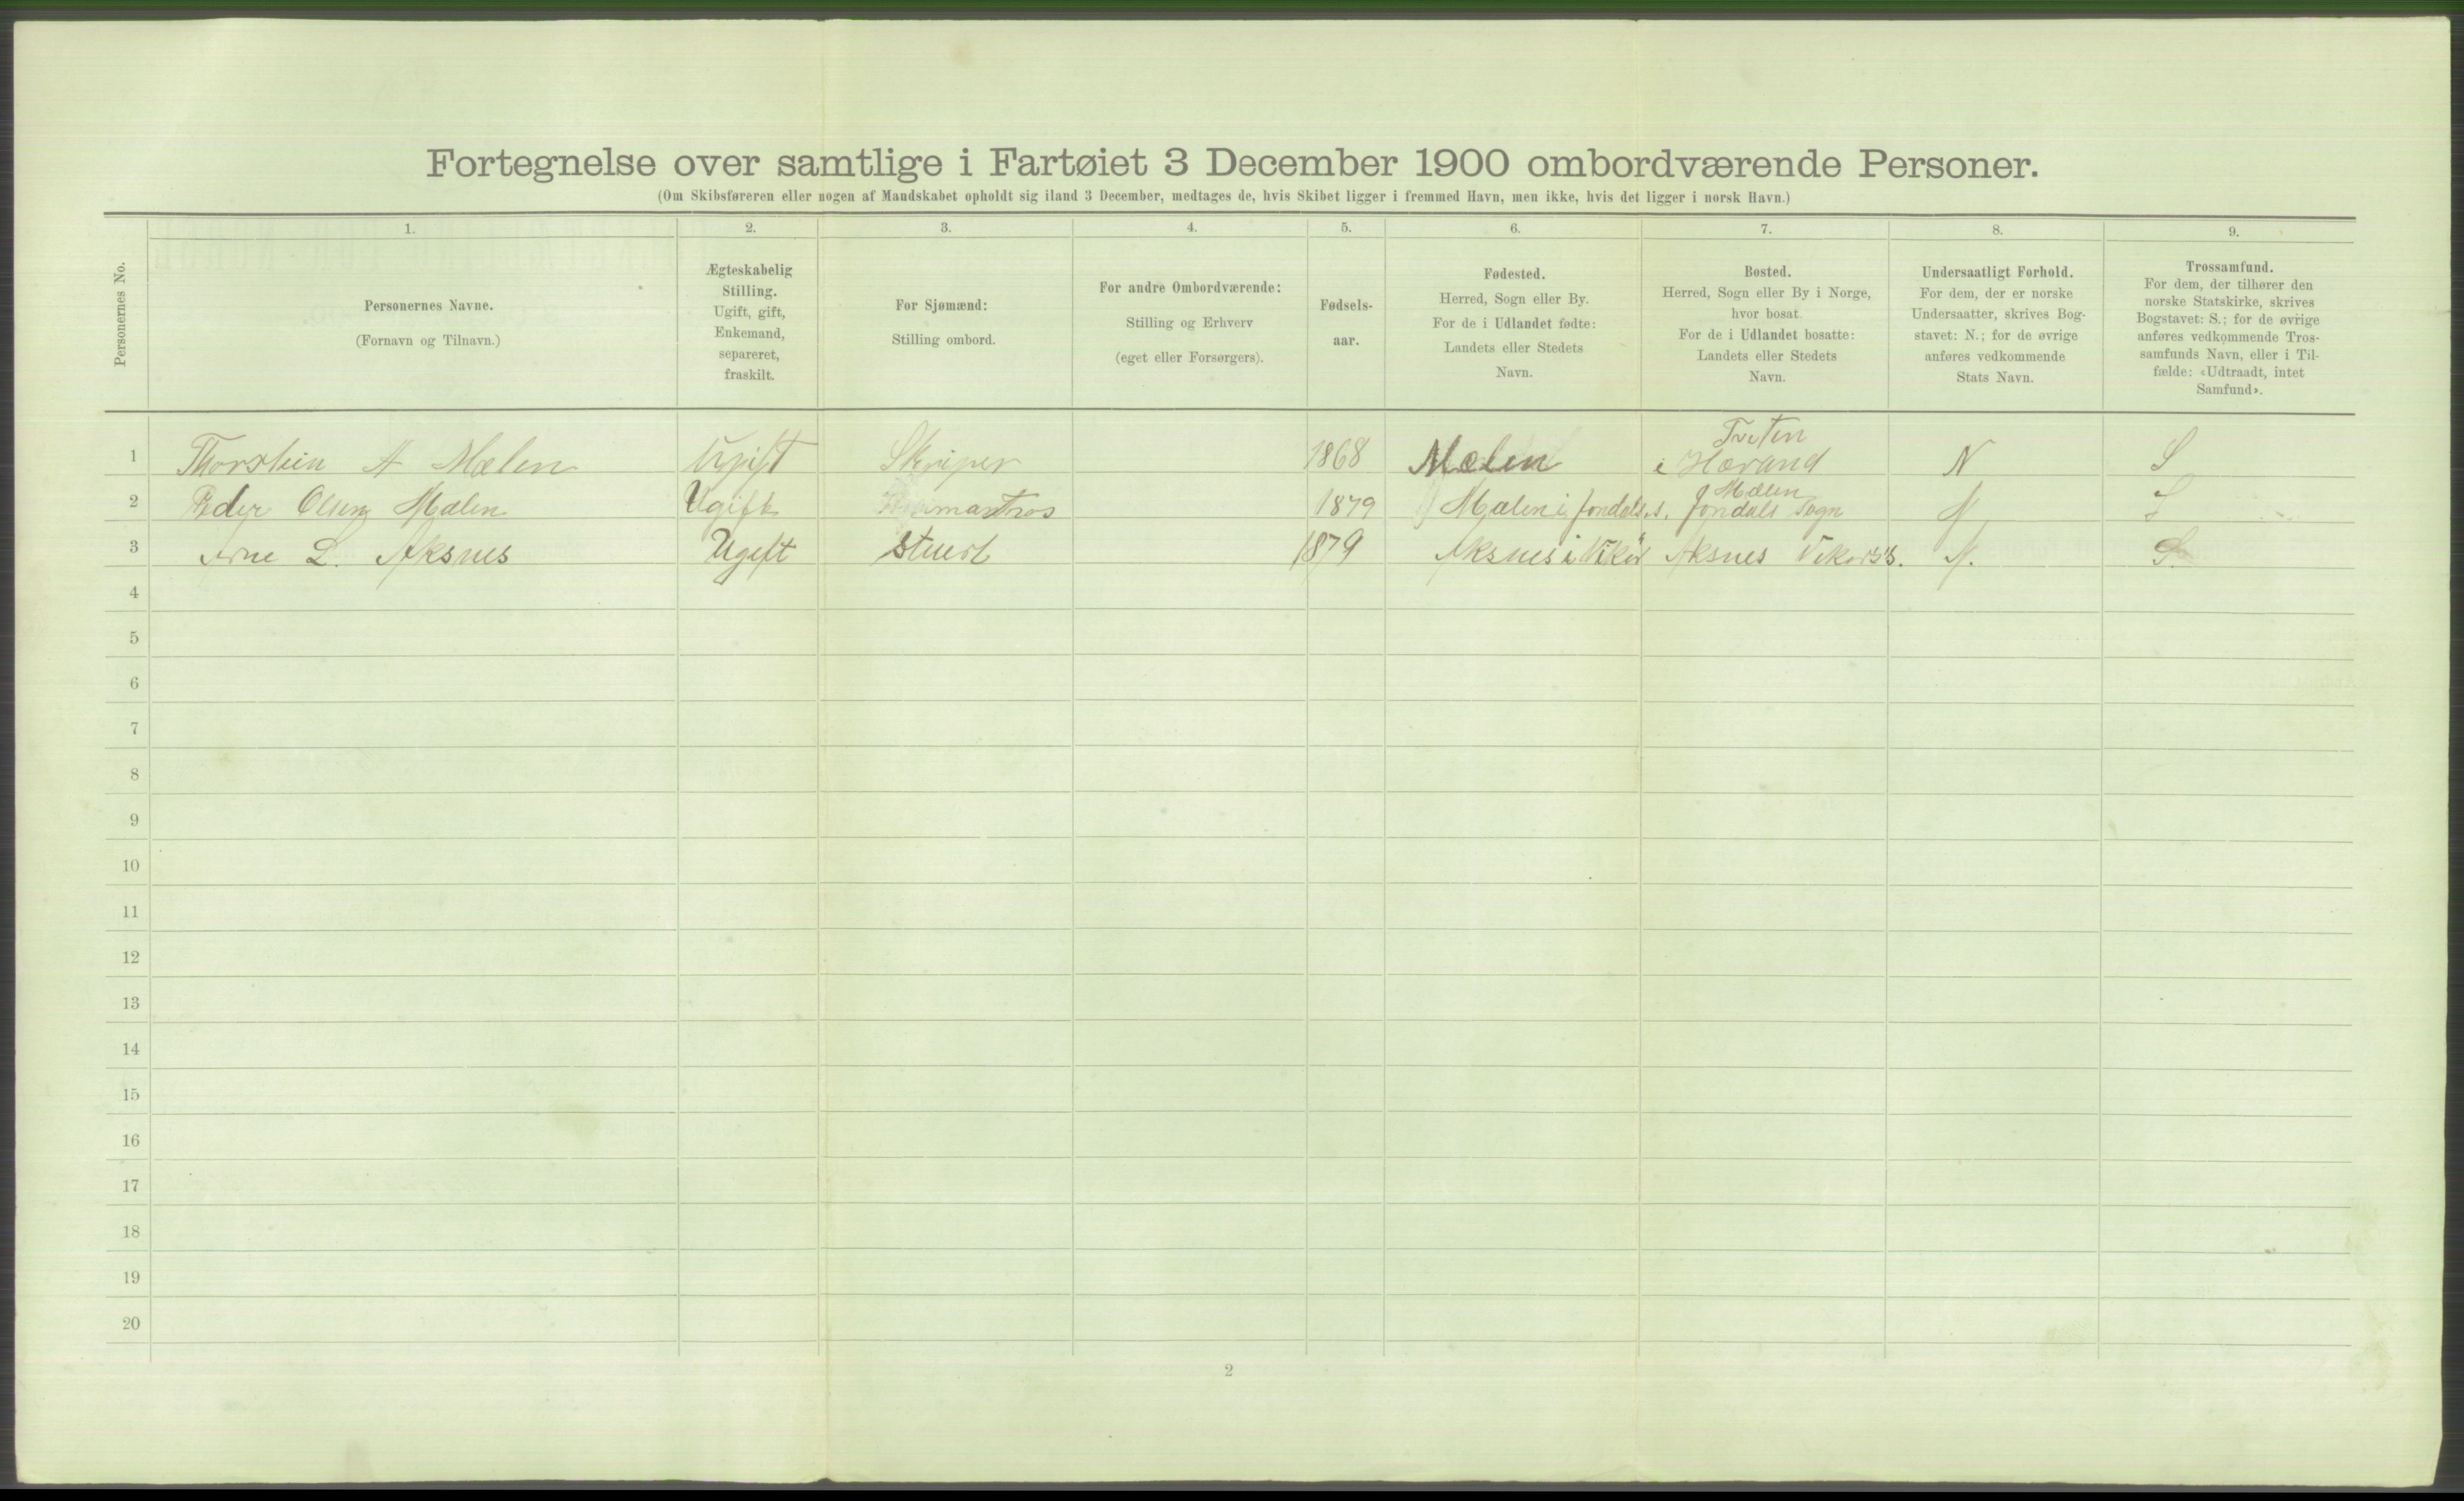 Fortegnelse over samtlige i Fartøiet 3 December 1900 ombordværende Personer.
(Om Skibsføreren eller nogen af Mandskabet opholdt sig iland 3 December, medtages de, hvis Skibet ligger i fremmed Havn, men ikke, hvis det ligger i norsk Havn.)
Personernes No.
1.
Personernes Navne.
(Fornavn og Tilnavn.)
2.
Ægteskabelig
Stilling.
Ugift, gift,
Enkemand,
separeret,
fraskilt.
3.
For Sjømænd:
Stilling ombord.
4.
For andre Ombordværende:
Stilling og Erhverv
(eget eller Forsørgers).
5.
Fødsels-
aar.
6.
Fødested.
Herred, Sogn eller By.
For de i Udlandet fødte:
Landets eller Stedets
Navn.
7.
Bosted.
Herred, Sogn eller By i Norge,
hvor bosat.
For de i Udlandet bosatte:
Landets eller Stedets
Navn.
8.
Undersaatligt Forhold.
For dem, der er norske
Undersaatter, skrives Bog-
stavet: N.; for de øvrige
anføres vedkommende
Stats Navn.
9.
Trossamfund.
For dem, der tilhører den
norske Statskirke, skrives
Bogstavet: S.; for de øvrige
anføres vedkommende Tros-
samfunds Navn, eller i Til-
fælde: «Udtraadt, intet
Samfund».
Tveten
1 Thorstein A Mælen Ugift Skriper 1868 Mælen i N S
Mælen
2 Peder Olsen Mælen Ugift 1879 Mælen i Jondals.s. Jondals Sogn N S
3 Arne L. Aksnes Ugift Stuert 1879 Aksnes i Vikör Aksnes Vikørs s. N. S.
4
5
6
7
8
9
10
11
12
13
14
15
16
17
18
19
20
2